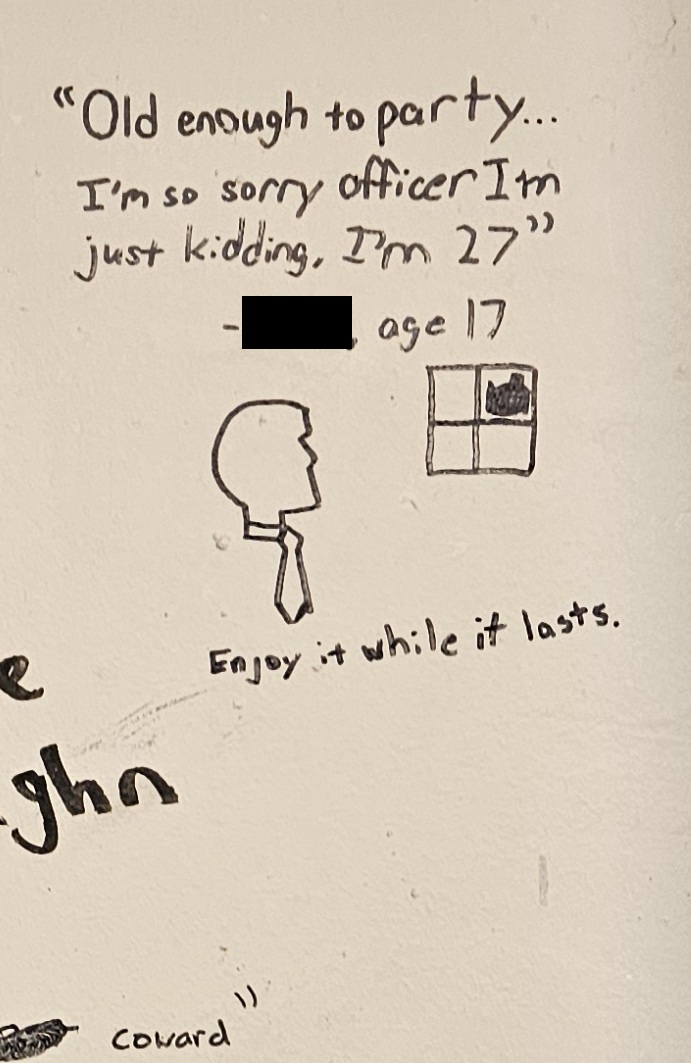 “Old enough to party...
I'm so sorry officer I'm
just kidding, I'm 27”
- , age 17
Enjoy it while it lasts.
e
ghn
coward”